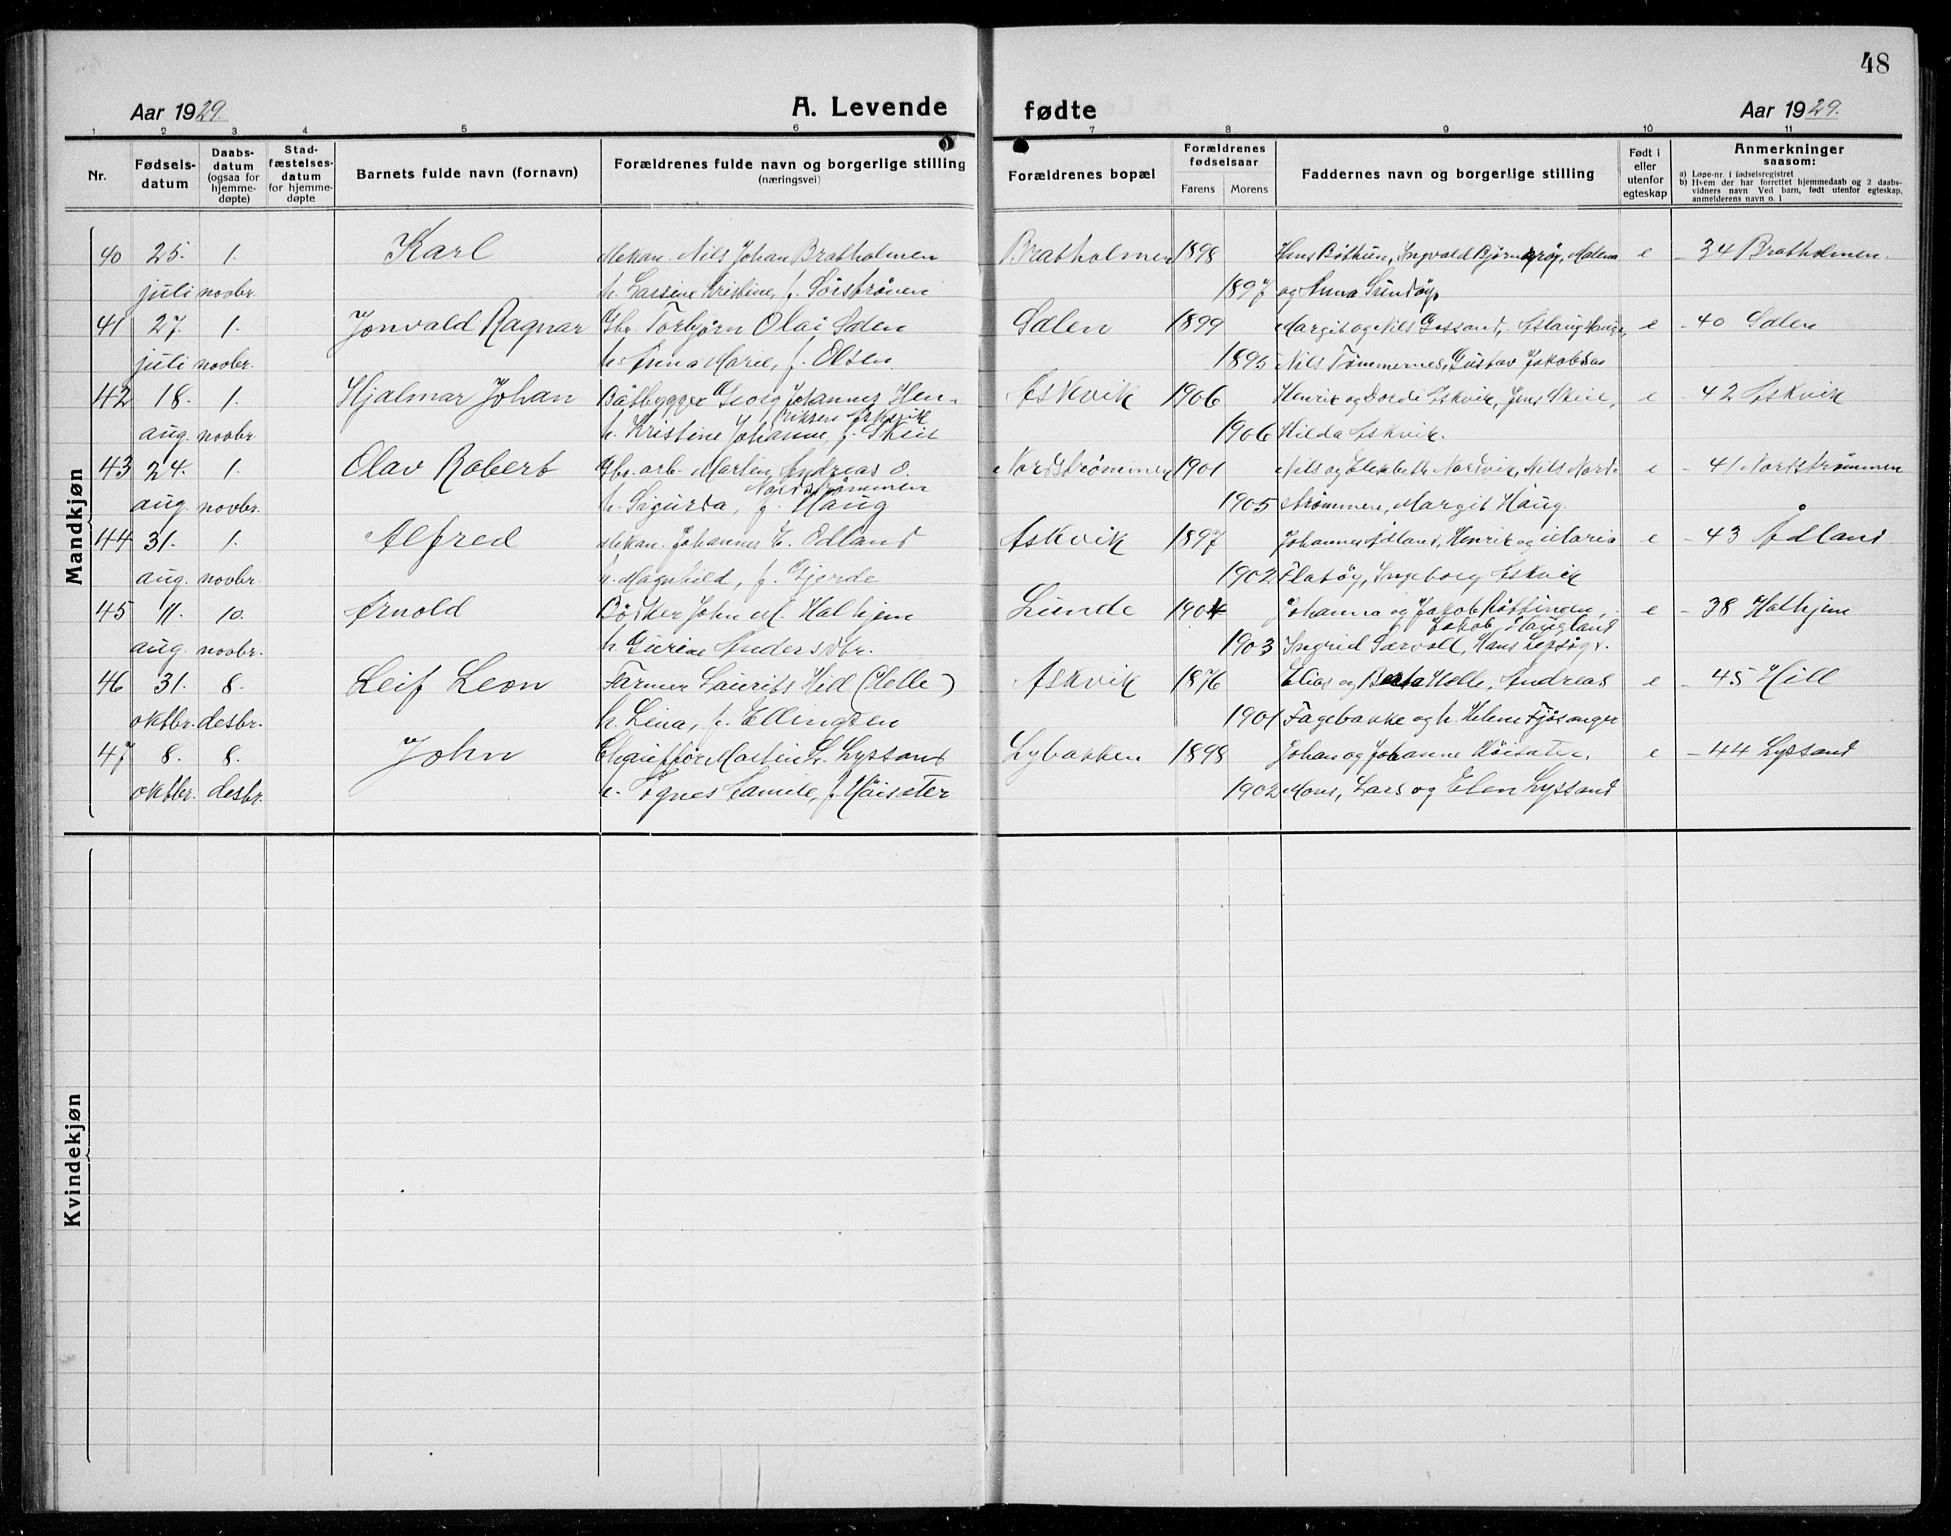 48
Aar 1929.
A. Levende
fødte
Aar 1929.
1 2 3 4 5 6 7 8 9 10 11
Nr.
Fødsels-
datum
Daabs-
datum
(ogsaa for
hjemme-
døpte)
Stad-
fæstelses-
datum
for hjemme-
døpte
Barnets fulde navn (fornavn)
Forældrenes fulde navn og borgerlige stilling
(næringsvei)
Forældrenes bopæl
Forældrenes
fødselsaar
Farens Morens
Faddernes navn og borgerlige stilling
Født i
eller
utenfor
egteskap
Anmerkninger
saasom:
a) Løpe-nr. i fødselsregistret
b) Hvem der har forrettet hjemmedaab og 2 daabs-
vidners navn Ved barn, født utenfor egteskap,
anmelderens navn o. l
Mandkjøn
40 25. 1. Karl Mekan. Nils Johan Bratholmen Bratholmen 1898 Hans Ingvald Malena e - 34 Bratholmen.
juli novbr. h. Kristine, f. 1897 og Anna Sundøy.
41 27. 1. Jonvald Ragnar Gbr. Torbjørn Olai Solen Solen 1899 Margit og Nils e - 40 Solen
juli novbr. h. Anna Marie, f. Olsen. 1895 Nils Tømmernes, Gustav Jakobsen
42 18. 1. Hjalmar Johan Båtbygger Georg Johannes Hen- Askvik 1906 Henrik og Dordi Askvik, Jens Skeie, e - 42 Askvik
riksen Askvik
aug. novbr. h. Kristine Johanne, f. Skeie 1906 Hilda Askvik.
43 24. 1. Olav Robert Gbr. arb. Martin Andreas O. Nordstrømmen 1901 Nils og Elisabeth Nordvik, Nils Nord- e - 41 Nordstrømmen
Nordstrømmen
aug. novbr. h. Sigurda, f. Haug 1905 strømmen, Margit Haug.
44 31. 1. Alfred Mekan. Johannes E. Ødland Askvik 1897 Johannes Ådland, Henrik og Maria e - 43 Ådland
aug. novbr. h. Magnhild, f. Gjerde 1902 Flatøy, Ingeborg Askvik
45 11. 10. Arnold Bødker John M. Halhjem Lunde 1904 Johanna og Jakob Røttingen, e - 38 Halhjem
Jakob Haugland
aug. novbr. h. Gurine Andersdtr. 1903 Ingrid Sørvoll, Hans Lepsøy.
46 31. 8. Leif Leon Farmer Laurits Hill (Helle) Askvik 1876 Elias og Berta Helle, Andreas e - 45 Hill
oktbr. desbr. h. Lina, f. Ellingsen 1901 Fagebakke og h. Helene Fjøsanger
47 8. 8. John Chauffør Martin L. Lyssand Lybakken 1898 Johan og Johanne Røisæter, e - 44 Lyssand
oktbr. desbr. h. Agnes Kamile, f. Røisæter 1902 Mons, Lars og Elen Lyssand
Kvindekjøn